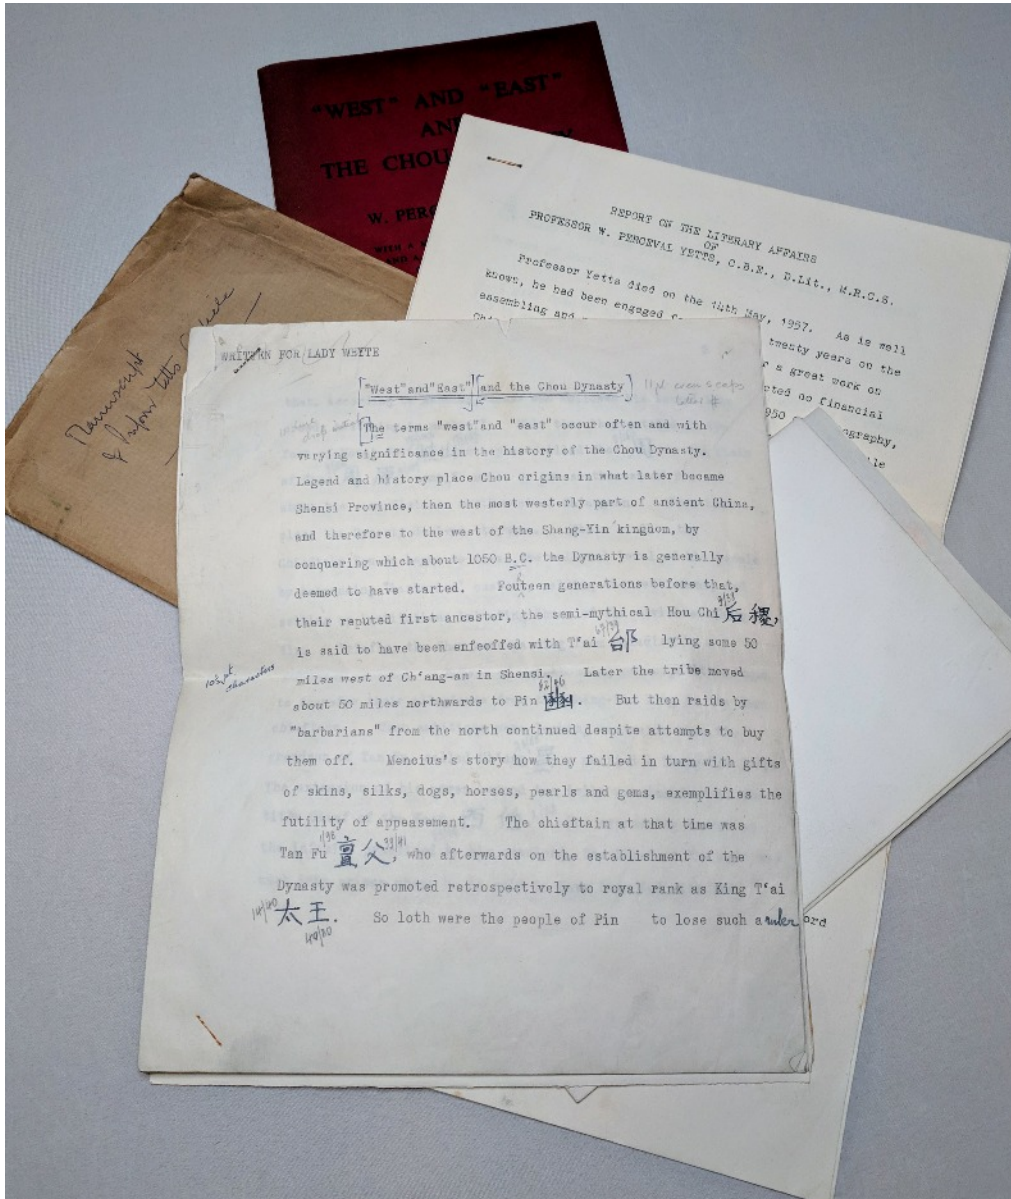 "WEST" AND "EAST"
AND
THE CHOU
W. PERC
WITH A
AND A
REPORT ON THE LITERARY AFFAIRS
OF
PROFESSOR W. PERCEVAL YETTS, C.B.E., D.Lit., M.R.C.S.
Professor Yetts died on the 14th May, 1957. As is well
known, he had been engaged
twenty years on the
assembling and
a great work on
no financial
950
ography,
Manuscript
of Profssor Yetts
WRITTEN FOR LADY WHYTE
"West"and"East" and the Chou Dynasty
The terms "west"and "east" occur often and with
varying significance in the history of the Chou Dynasty.
Legend and history place Chou origins in what later became
Shensi Province, then the most westerly part of ancient China,
and therefore to the west of the Shang-Yin kingdom, by
conquering which about 1050 B.C. the Dynasty is generally
deemed to have started. Fouteen generations before that,
their reputed first ancestor, the semi-mythical Hou Chi 后稷,
is said to have been enfeoffed with T'ai 邰 lying some 50
10½pt characters
miles west of Ch'ang-an in Shensi. Later the tribe moved
about 50 miles northwards to Pin 豳. But then raids by
"barbarians" from the north continued despite attempts to buy
them off. Mencius's story how they failed in turn with gifts
of skins, silks, dogs, horses, pearls and gems, exemplifies the
futility of appeasement. The chieftain at that time was
Tan Fu 亶父, who afterwards on the establishment of the
Dynasty was promoted retrospectively to royal rank as King T'ai
14/40
太王. So loth were the people of Pin to lose such a ruler ord
40/80